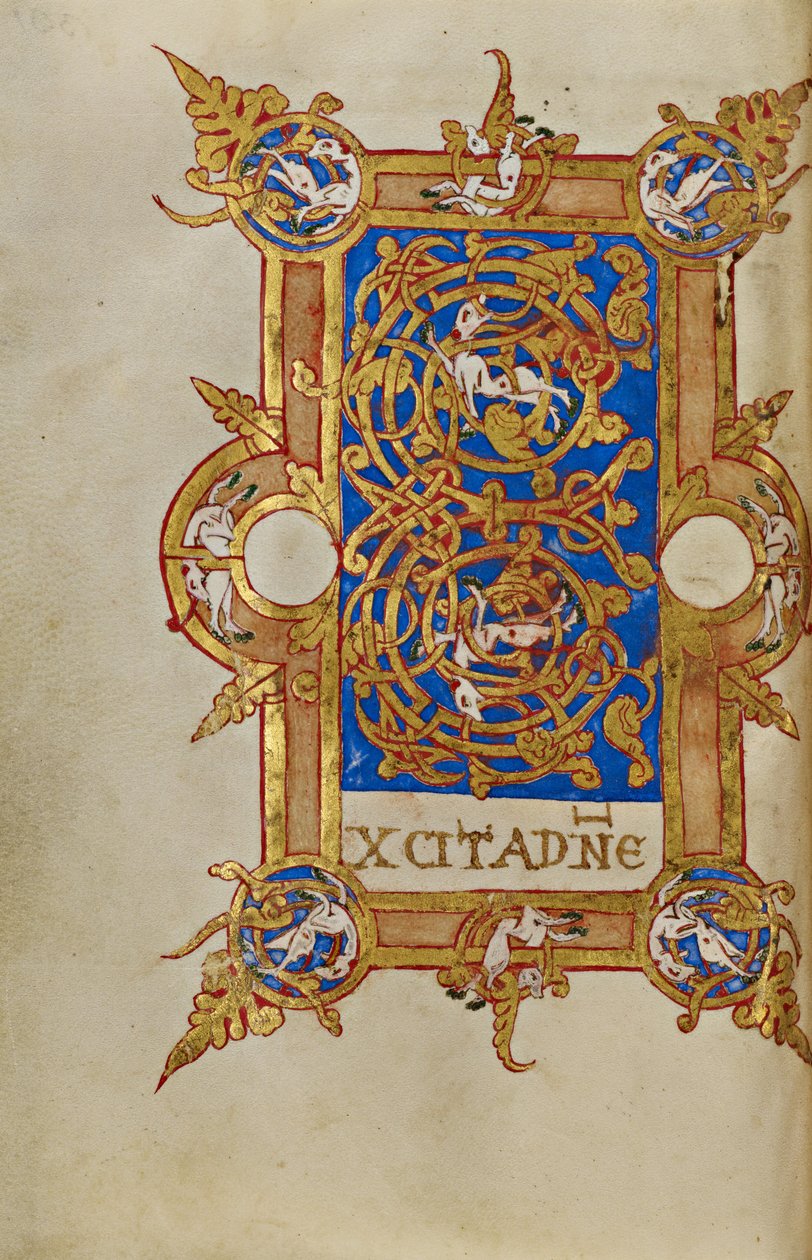 E
XCITADN̄E